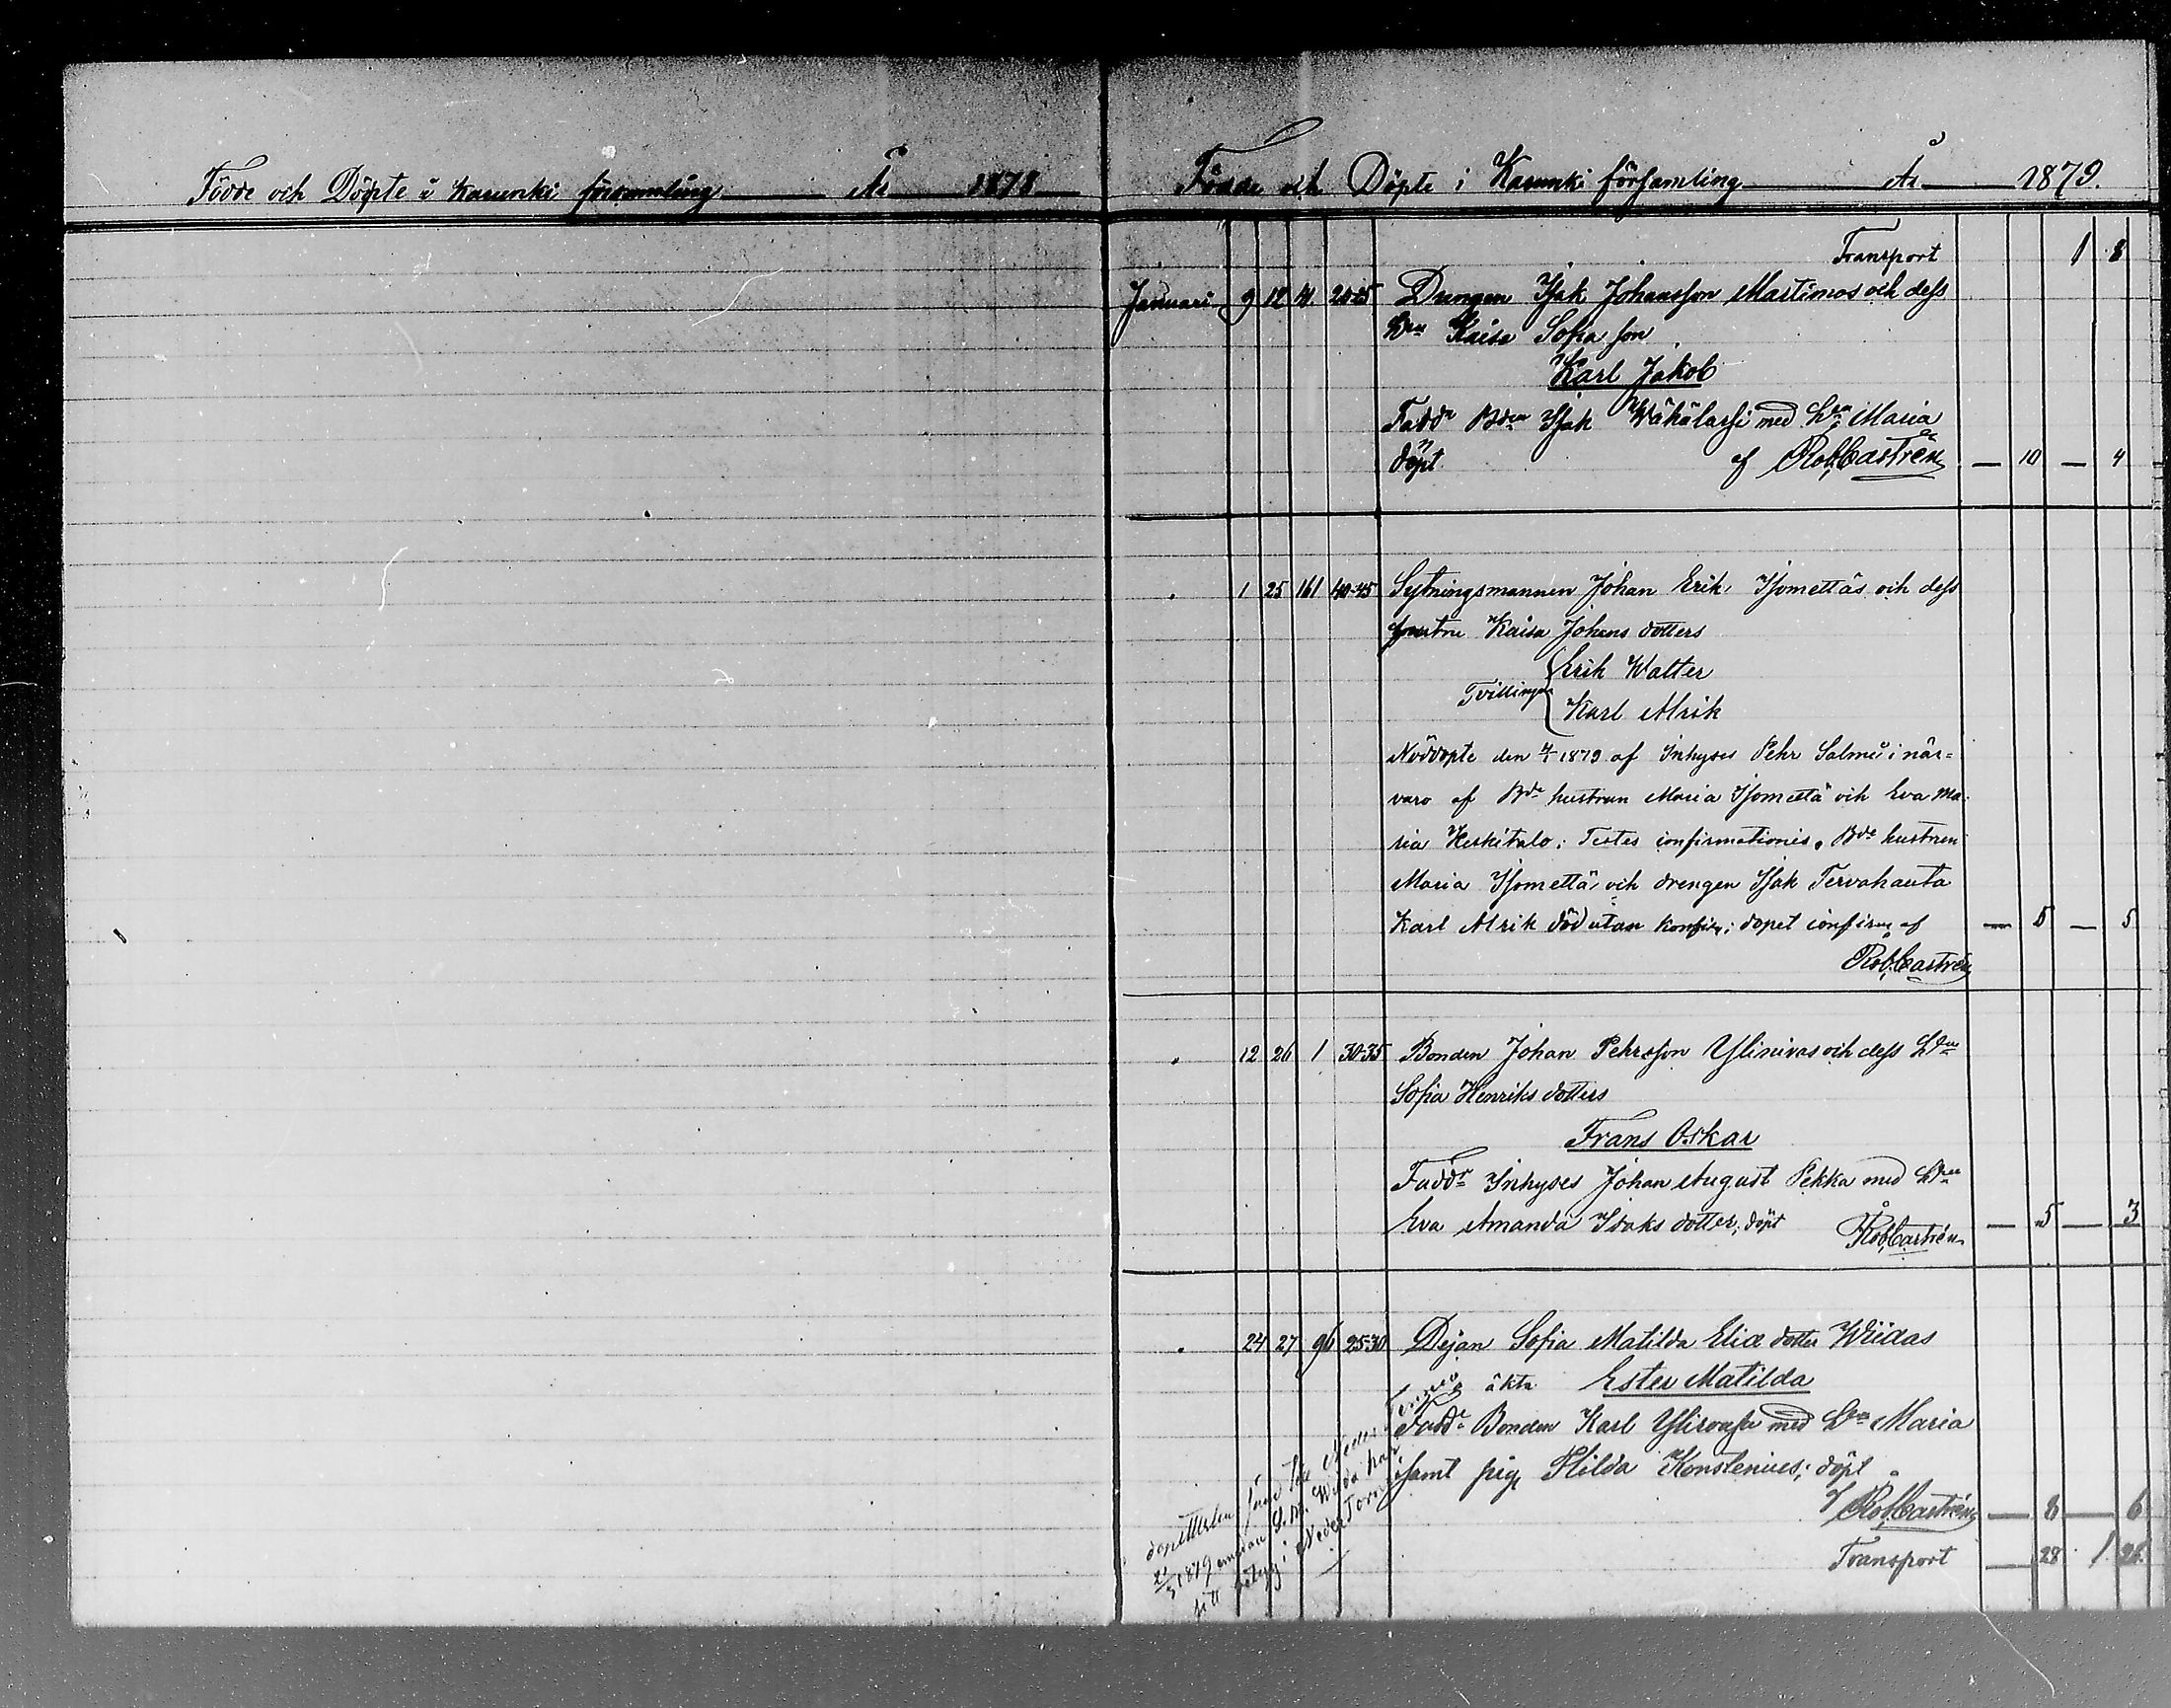 Födde och Döpte i Karunki församling År 1878
Födde och Döpte i Karunki församling År 1879.
Transport 1 8
Januari 9 12 41 20-25 Drengen Isak Johansson Martimos och dess
Hru Kaisa Sofia son
Karl Jakob
Faddr Bden Isak Wähälassi med Hru Maria
döpt af Rob. Castrén — 10 — 4
" 1 25 161 40-45 Sytningsmannen Johan Erik Isomettäs och dess
hustru Kaisa Johans dotters
Erik Walter
Tvillingar
Karl Alrik
Nöddopte den 4/1 1879 af Inhyses Pehr Salmi i när=
varo af Bde hustrun Maria Isomettä och Eva Ma-
ria Keskitalo; Testes confirmationis, Bde hustrun
Maria Isomettä, och drengen Isak Tervahauta
Karl Alrik död utan konfirm; dopet confirm af — 5 — 5
Rob. Castrén
" 12 26 1 30-35 Bonden Johan Pehrsson Ylinivas och dess Hru
Sofia Henriks dotters
Frans Oskar
Faddr Inhyses Johan August Pekka med Hru
Eva Amanda Isaks dotter; döpt Rob. Castrén — 5 — 3
" 24 27 96 25-30 Dejan Sofia Matilda Eliæ dotter Wiidas
äkta Ester Matilda
Faddr Bonden Karl Ylirousu med Hru Maria
samt pig. Hilda Konstenius; döpt
af Rob. Castrén — 8 — 6
Transport — 28 1 26
1879 emedan S. M. Wiida har
sitt i Neder Torneå